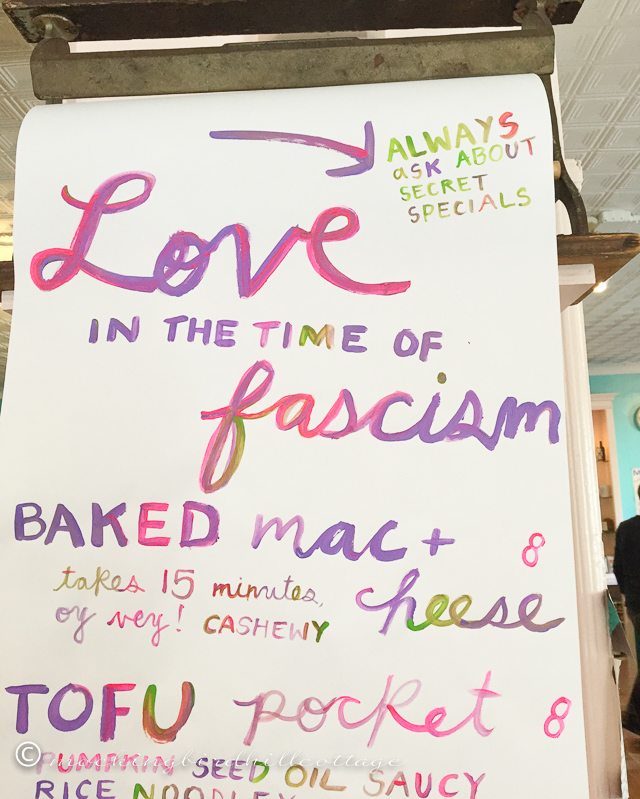 ALWAYS
ASK ABOUT
SECRET
SPECIALS
Love
IN THE TIME OF
fascism
BAKED mac + 8
cheese
takes 15 minutes,
oy vey! CASHEWY
TOFU pocket 8
PUMPKIN SEED OIL SAUCY
RICE NOODLEY
© mockingbirdhillcottage